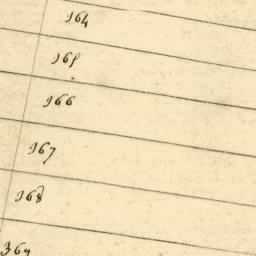 364
365
366
367
368
369